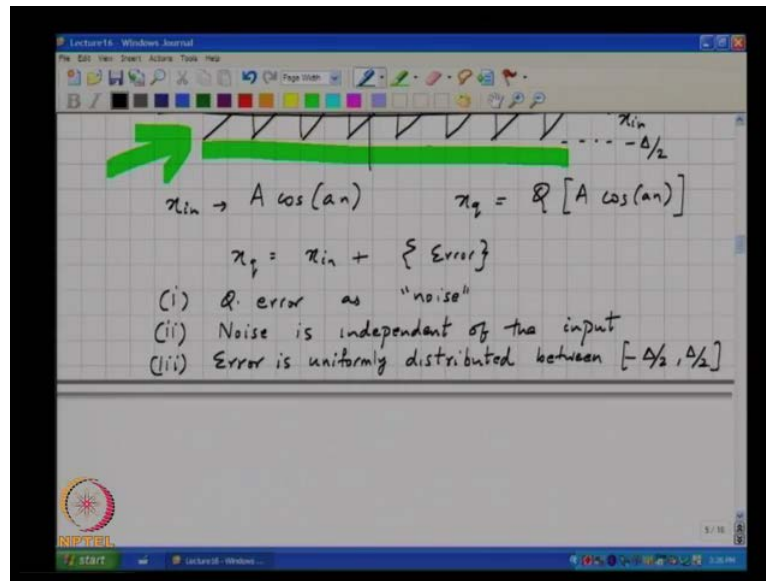 Lecture16 - Windows Journal
File Edit View Insert Actions Tools Help
Page Width
B I
x_in
- Δ/2
x_in → A cos(an) x_q = Q [A cos(an)]
x_q = x_in + { Error }
(i) Q. error as "noise"
(ii) Noise is independent of the input
(iii) Error is uniformly distributed between [-Δ/2, Δ/2]
5/10
NPTEL
start Lecture16 - Windows ...